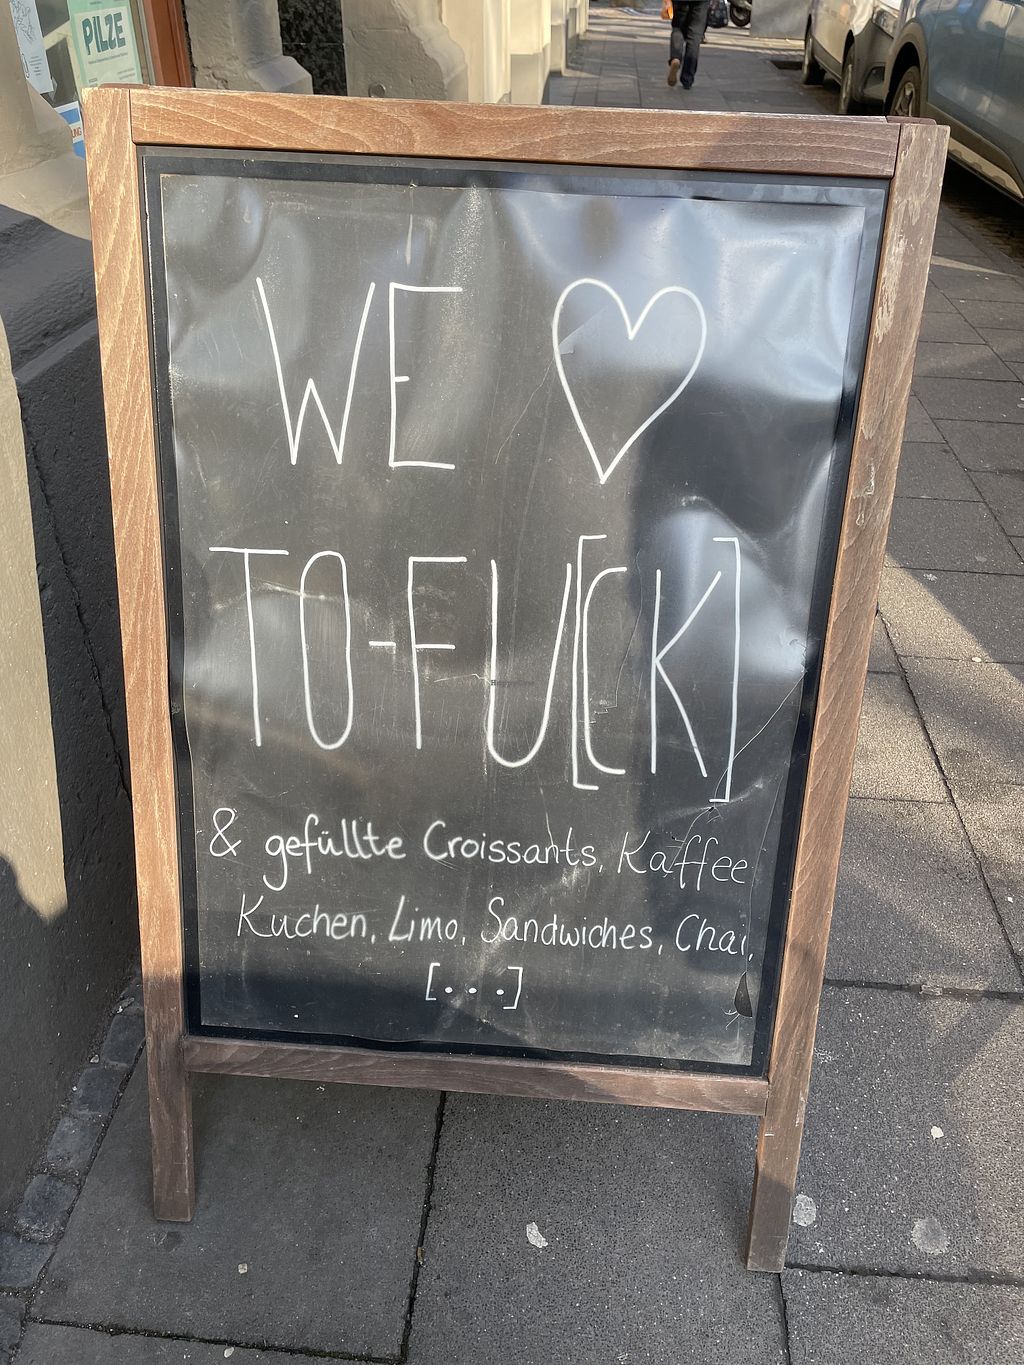 PILZE
WE ♡
TO-FU[CK]
& gefüllte Croissants, Kaffee
Kuchen, Limo, Sandwiches, Chai,
[...]